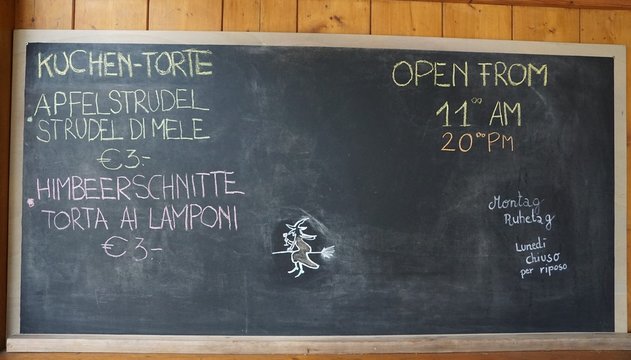 KUCHEN-TORTE
. APFELSTRUDEL
STRUDEL DI MELE
€3.-
. HIMBEERSCHNITTE
TORTA AI LAMPONI
€3.-
OPEN FROM
11⁰⁰ AM
20⁰⁰ PM
Montag
Ruhetag
Lunedi
chiuso
per riposo